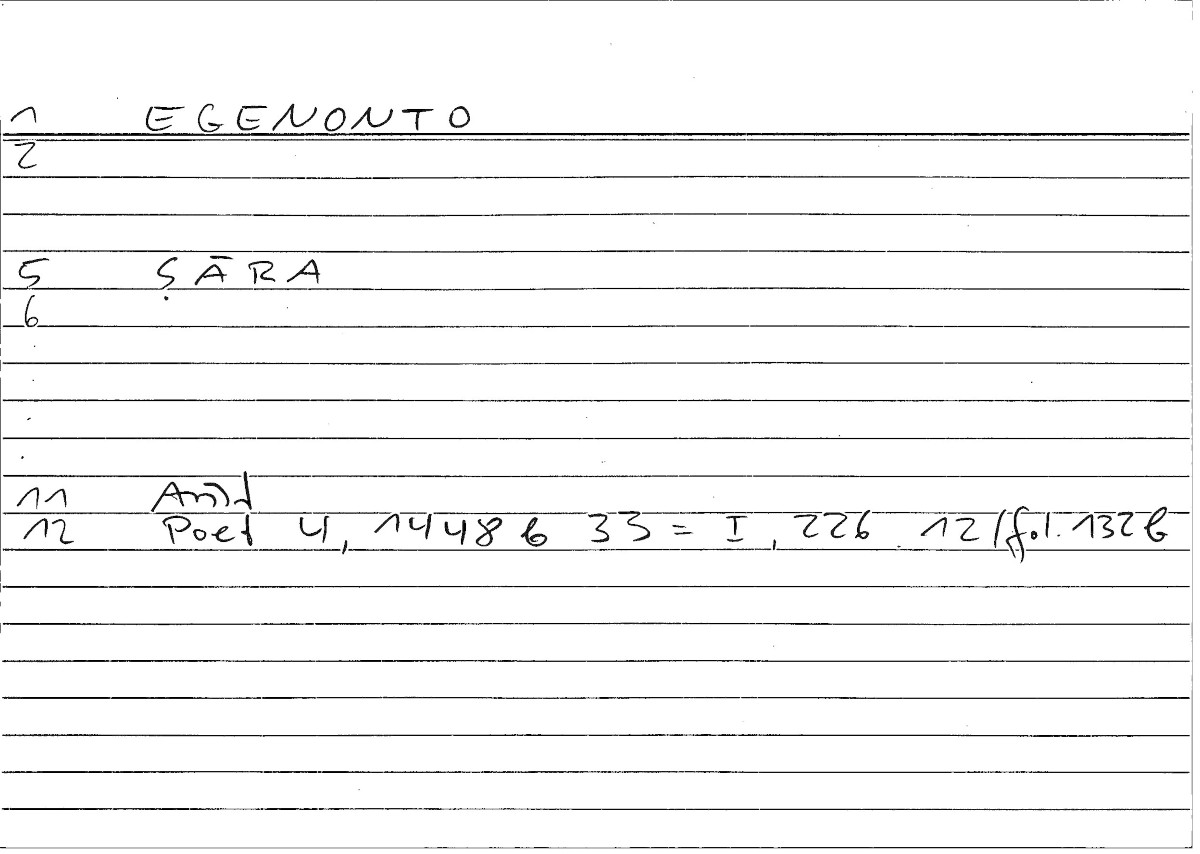 1 EGENONTO
2
5 ṢĀRA
6
11
12 Poet 4, 1448 b 33 = I, 226 12 / fol. 132 b